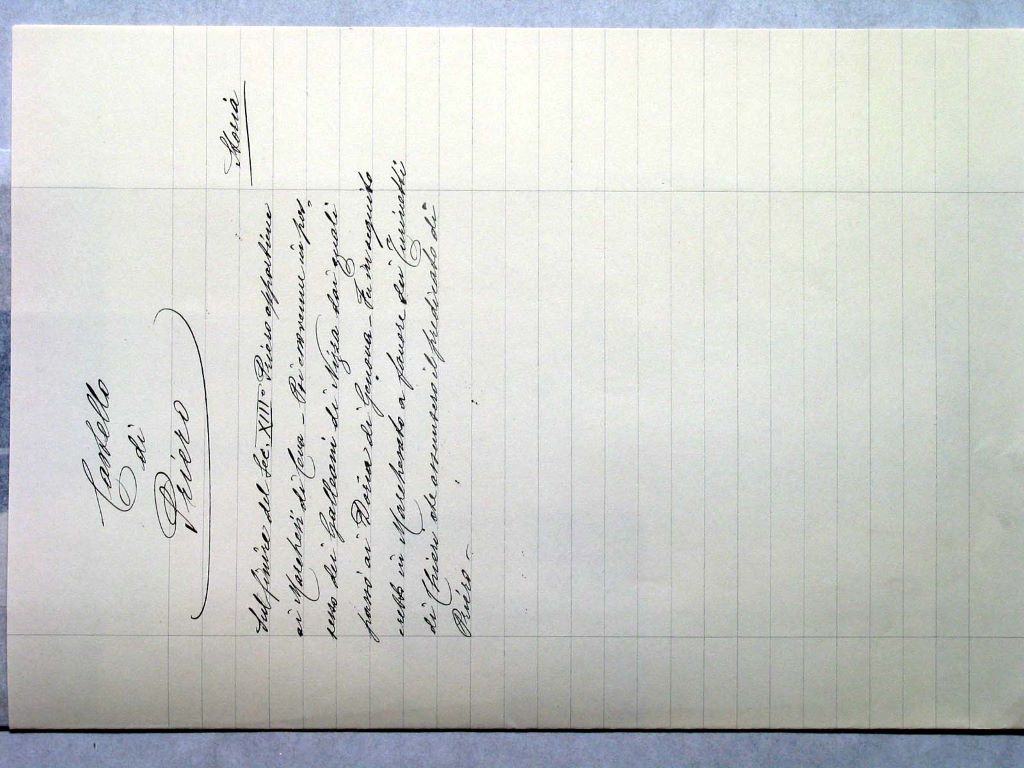 Castello
di
Priero
Storia
Sul finire del Sec. XIIIº Priero appartiene
ai Marchesi di Ceva - Poi crovenne in pos
sesso dei Galleani di Nizza dai quali
passò ai Doria di Genova - Fu in seguito
eretto in Marchesato a favore dei Turinetti
di Chieri che assunsero il predicato di
Priéro -